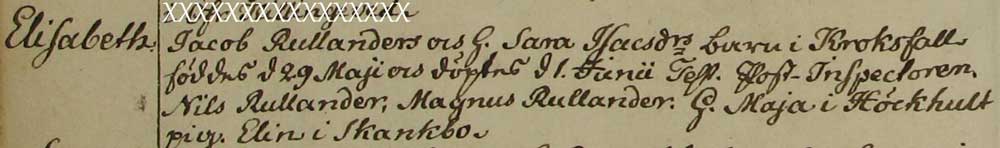 Elisabeth.
Jacob Rullanders och H. Sara Isacsdrs barn i Kroksfall
föddes d 29 Maji och döptes d 1. Junii Test. Post-Inspectoren.
Nils Rullander, Magnus Rullander. H. Maja i Höckhult
pig. Elin i Skankbo.